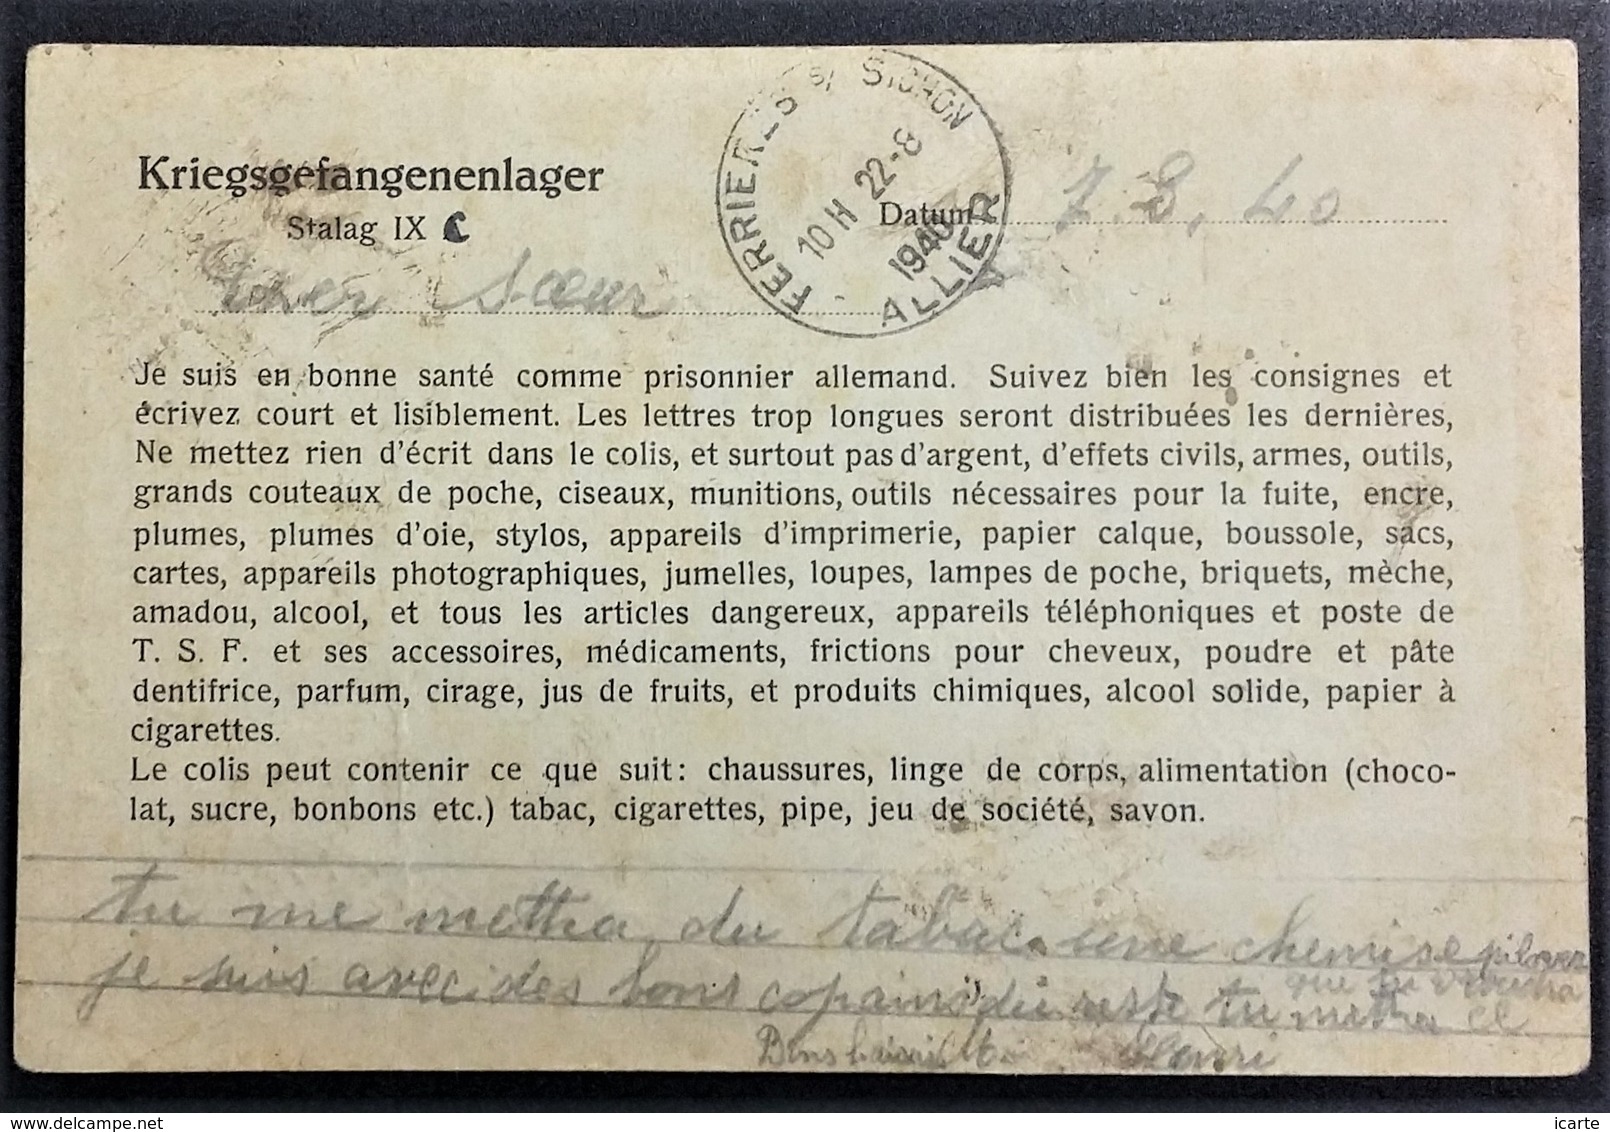 FERRIERES S/ SICHON
10 H 22-8
1940
ALLIER
Kriegsgefangenenlager
Datum 7.8.40
Stalag IX C
Cher Sœur
Je suis en bonne santé comme prisonnier allemand. Suivez bien les consignes et
écrivez court et lisiblement. Les lettres trop longues seront distribuées les dernières,
Ne mettez rien d'écrit dans le colis, et surtout pas d'argent, d'effets civils, armes, outils,
grands couteaux de poche, ciseaux, munitions, outils nécessaires pour la fuite, encre,
plumes, plumes d'oie, stylos, appareils d'imprimerie, papier calque, boussole, sacs,
cartes, appareils photographiques, jumelles, loupes, lampes de poche, briquets, mèche,
amadou, alcool, et tous les articles dangereux, appareils téléphoniques et poste de
T. S. F. et ses accessoires, médicaments, frictions pour cheveux, poudre et pâte
dentifrice, parfum, cirage, jus de fruits, et produits chimiques, alcool solide, papier à
cigarettes.
Le colis peut contenir ce que suit: chaussures, linge de corps, alimentation (choco-
lat, sucre, bonbons etc.) tabac, cigarettes, pipe, jeu de société, savon.
tu me mettra du tabac une chemise
je suis avec des bons copains du reste tu mettra ce
que tu
Bons baisers Henri
icarte